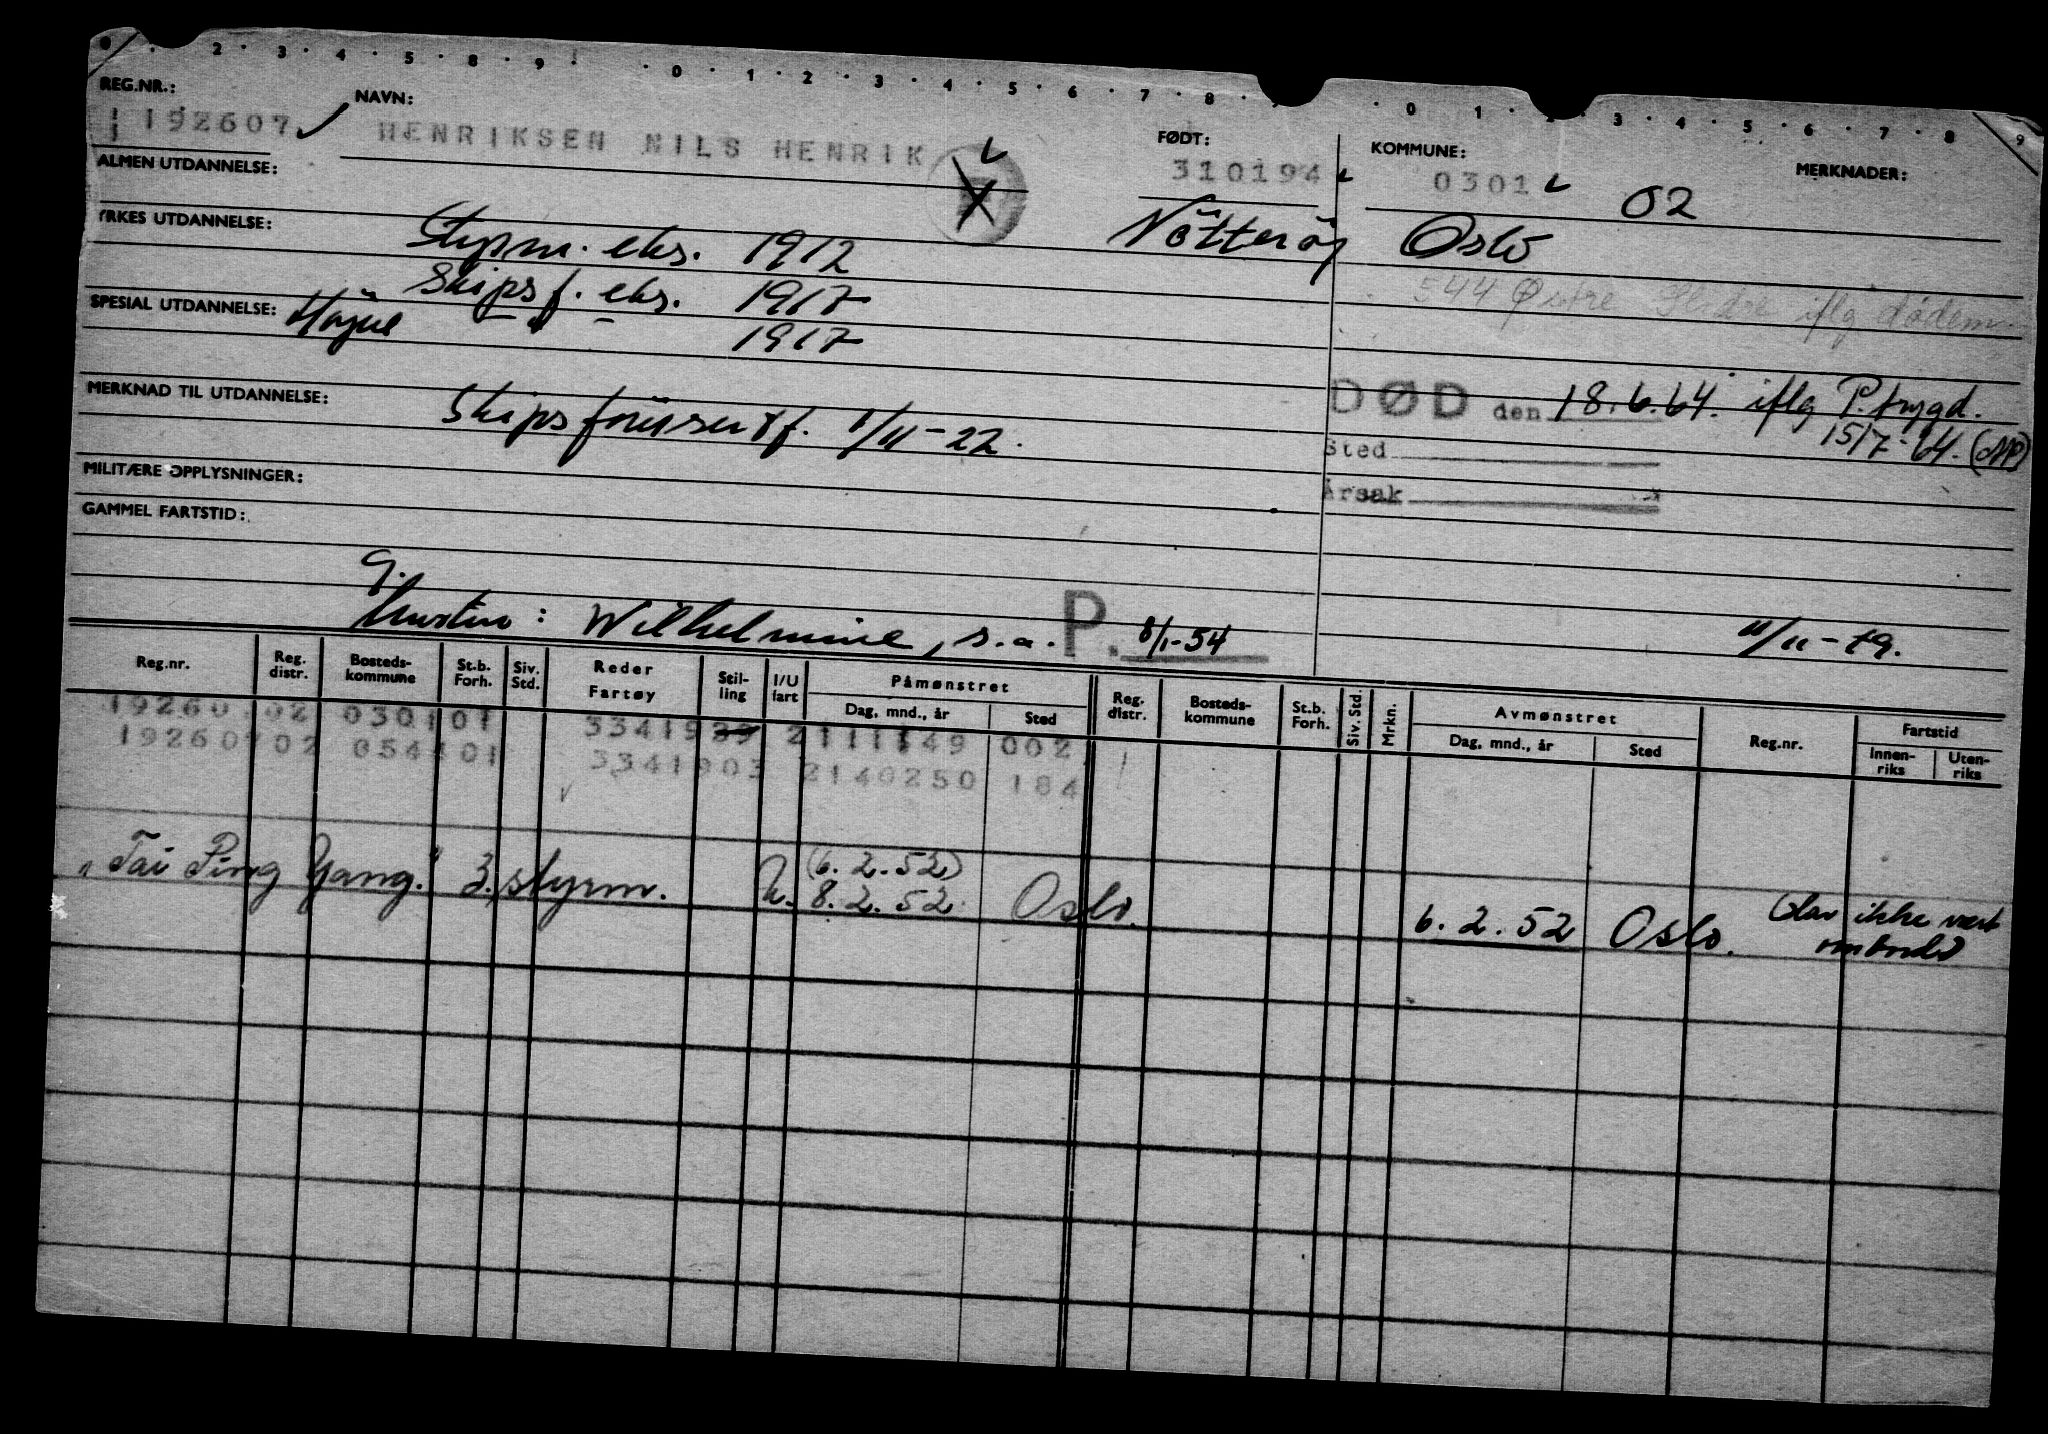 2 3 4 5 8 9 0 1 2 3 4 5 6 7 8 0 1 3 4 5 6 7 8 9
REG.NR.: NAVN: FØDT: KOMMUNE: MERKNADER:
192607 HENRIKSEN NILS HENRIK 310194 0301 02
ALMEN UTDANNELSE:
Nötteröy Oslo
YRKES UTDANNELSE: Styrm. eks. 1912
Skipsf. eks. 1917
544 Østre Slidre iflg dødem.
SPESIAL UTDANNELSE: Höyere 1917
DØD den 18.6.64. iflg P.trygd.
15/7-64.
MERKNAD TIL UTDANNELSE: Skipsförersertf. 1/11-22.
Sted
Årsak
MILITÆRE OPPLYSNINGER:
GAMMEL FARTSTID:
g.
Hustru: Wilhelmine, s.a. P. 8/1-54 11/11-49.
Reg.nr. Reg. distr. Bosteds-kommune St.b. Forh. Siv. Std. Reder Fartøy Stil-ling I/U fart Påmønstret Dag, mnd., år Sted Reg. distr. Bosteds-kommune St.b. Forh. Siv. Std. Mrkn. Avmønstret Dag, mnd., år Sted Reg.nr. Fartstid Innen-riks Uten-riks
19260 02 030101 33419 2111149 002
19260702 054401 3341903 2140250 184
"Tai Ping Yang." 3. styrm. U. (6.2.52)
8.2.52 Oslo. 6.2.52 Oslo. Har ikke vært
ombord